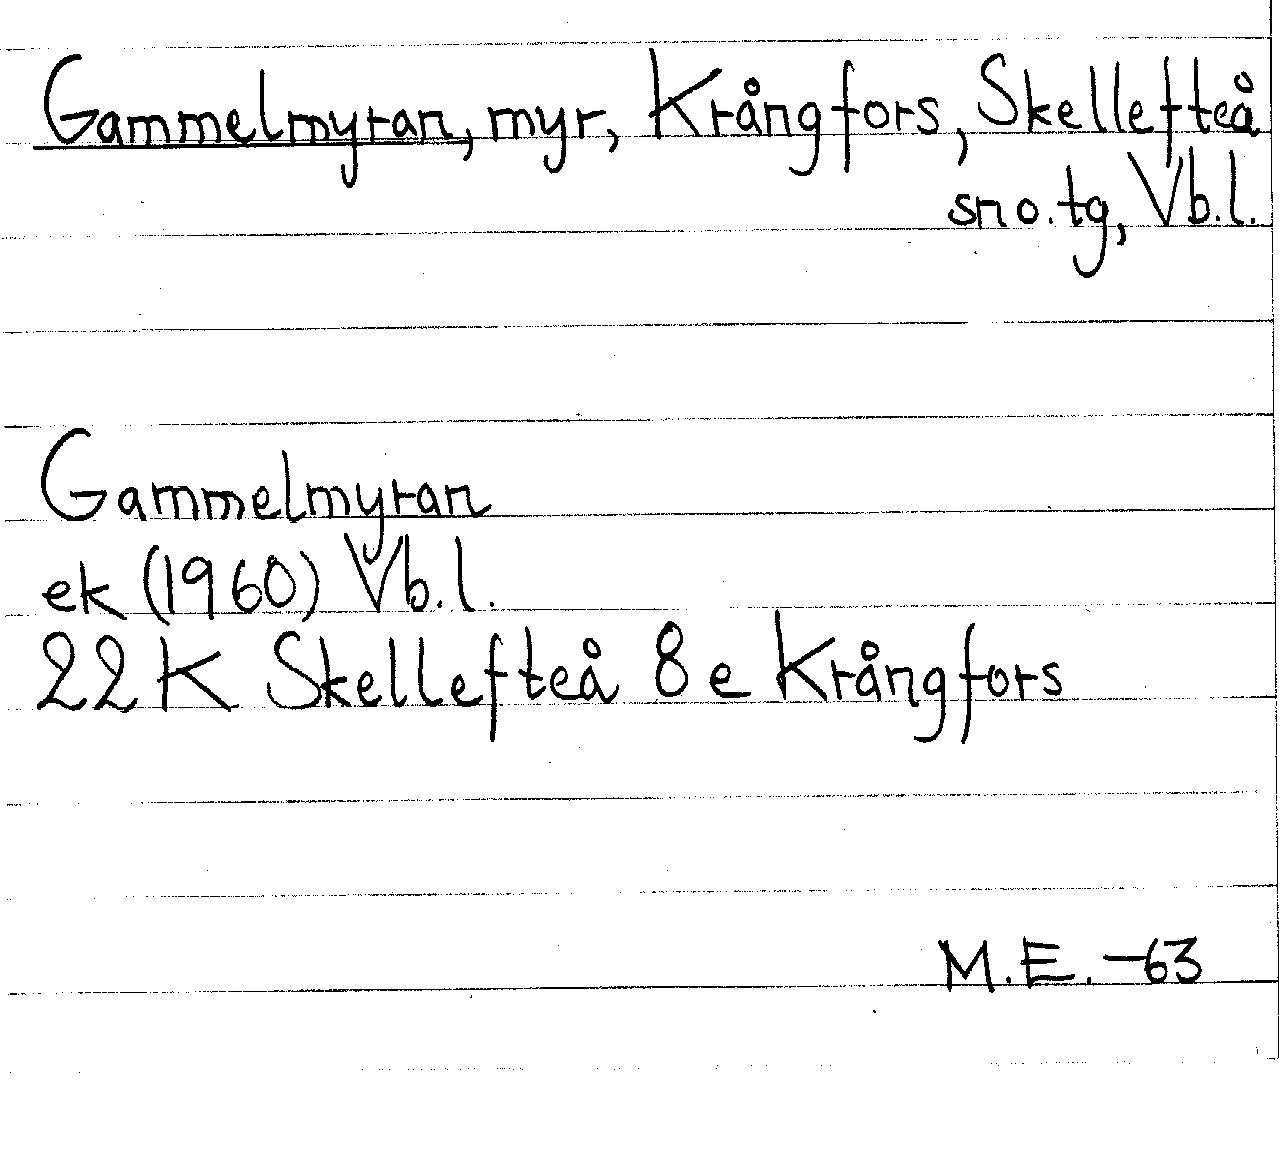 Gammelmyran, myr, Krångfors, Skellefteå
sn o. tg, Vb.l.
Gammelmyran
ek (1960) Vb.l.
22K Skellefteå 8e Krångfors
M.E. -63